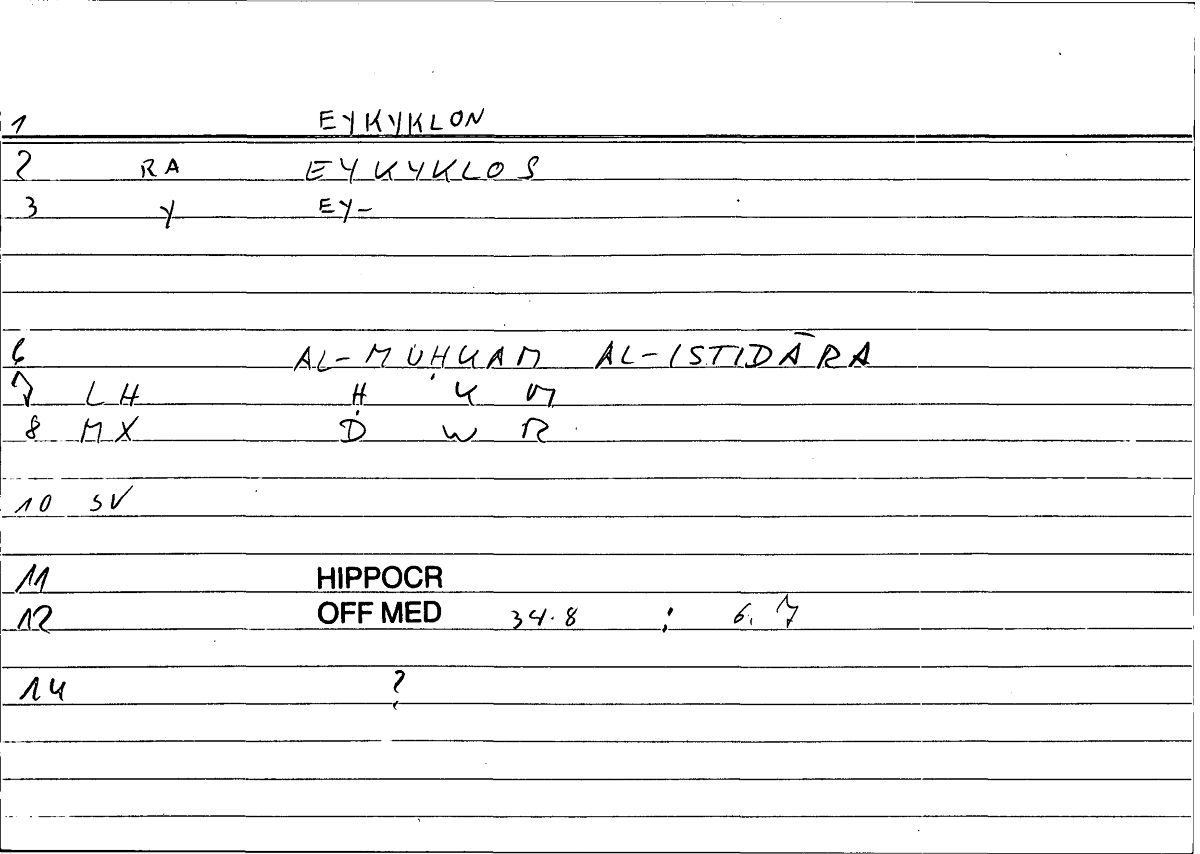 1 EYKYKLON
2 RA EYKYKLOS
3 Y EY-
6 AL-MUḤKAM AL-ISTIDĀRA
7 LH Ḥ K M
8 MX D W R
10 SV
11 HIPPOCR
12 OFF MED 34.8 : 6.7
14 ?